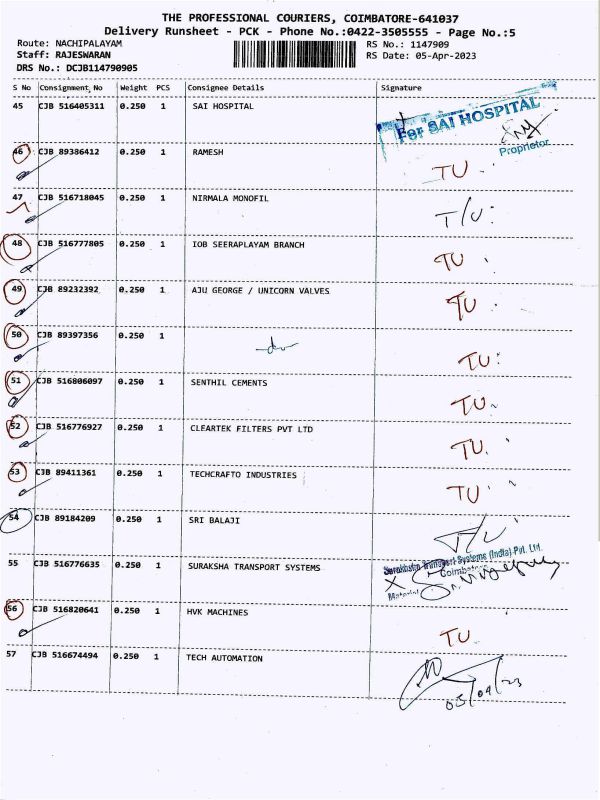 THE PROFESSIONAL COURIERS, COIMBATORE-641037
Delivery Runsheet - PCK - Phone No.:0422-3505555 - Page No.:5
Route: NACHIPALAYAM
RS No.: 1147909
Staff: RAJESWARAN
RS Date: 05-Apr-2023
DRS No.: DCJB114790905
S No Consignment, No Weight PCS Consignee Details Signature
45 CJB 516405311 0.250 1 SAI HOSPITAL
For SAI HOSPITAL
Proprietor
46 CJB 89386412 0.250 1 RAMESH
TU
47 CJB 516718045 0.250 1 NIRMALA MONOFIL
T/U
48 CJB 516777805 0.250 1 IOB SEERAPLAYAM BRANCH
TU
49 CJB 89232392 0.250 1 AJU GEORGE / UNICORN VALVES
TU
50 CJB 89397356 0.250 1
TU
51 CJB 516806097 0.250 1 SENTHIL CEMENTS
TU
52 CJB 516776927 0.250 1 CLEARTEK FILTERS PVT LTD
TU
53 CJB 89411361 0.250 1 TECHCRAFTO INDUSTRIES
TU
54 CJB 89184209 0.250 1 SRI BALAJI
T/U
55 CJB 516776635 0.250 1 SURAKSHA TRANSPORT SYSTEMS
Suraksha Transport Systems (India) Pvt. Ltd.
Coimbatore
Material
56 CJB 516820641 0.250 1 HVK MACHINES
TU
57 CJB 516674494 0.250 1 TECH AUTOMATION
05/04/23